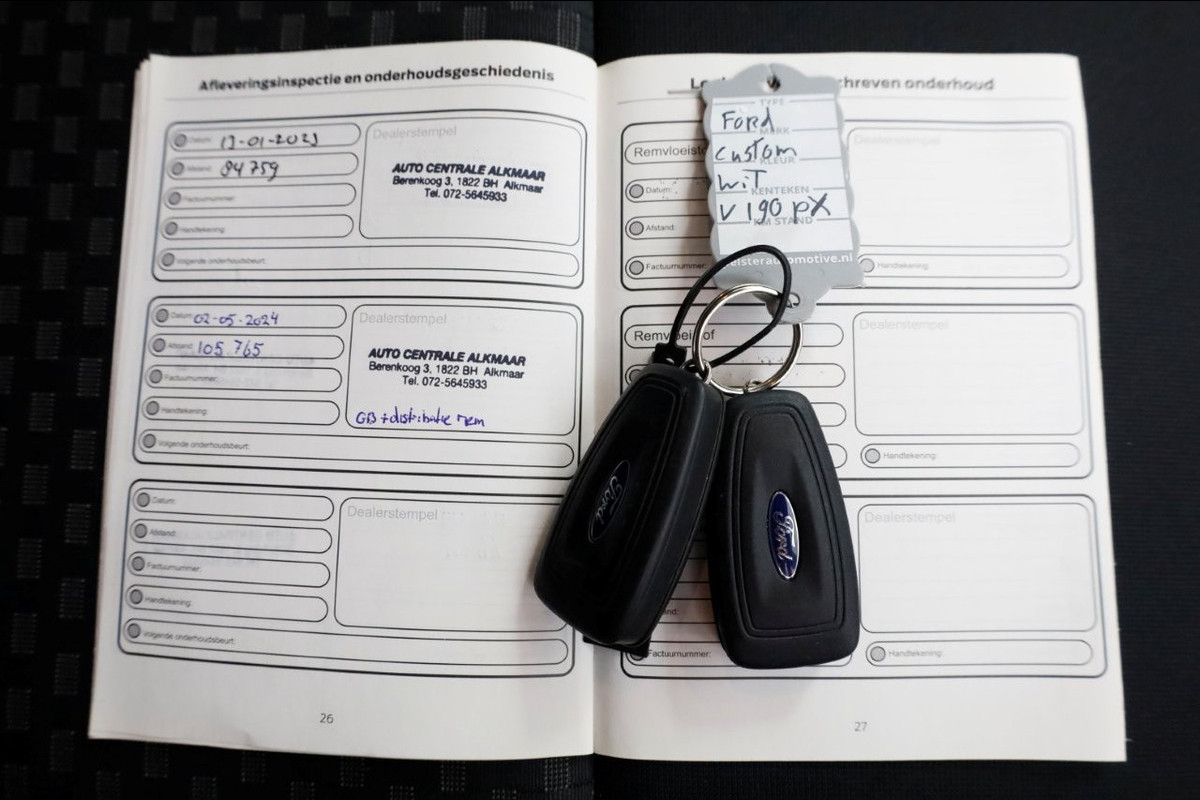 Afleveringsinspectie en onderhoudsgeschiedenis
Datum: 17-01-2023
Afstand: 84 759
Factuurnummer:
Handtekening:
Volgende onderhoudsbeurt:
Dealerstempel
AUTO CENTRALE ALKMAAR
Berenkoog 3, 1822 BH Alkmaar
Tel. 072-5645933
Datum: 02-05-2024
Afstand: 105.765
Factuurnummer:
Handtekening:
Volgende onderhoudsbeurt:
Dealerstempel
AUTO CENTRALE ALKMAAR
Berenkoog 3, 1822 BH Alkmaar
Tel. 072-5645933
GB + distributie
Datum:
Afstand:
Factuurnummer:
Handtekening:
Volgende onderhoudsbeurt:
Dealerstempel
26
chreven onderhoud
Remvloeisto
Datum:
Afstand:
Factuurnummer:
Dealerstempel
Handtekening:
Remvloeistof
Dealerstempel
Handtekening:
Dealerstempel
and:
Factuurnummer:
Handtekening:
27
TYPE
Ford
MERK
Custom
KLEUR
wit
KENTEKEN
V 190 PX
KM STAND
eisterautomotive.nl
Ford
Ford